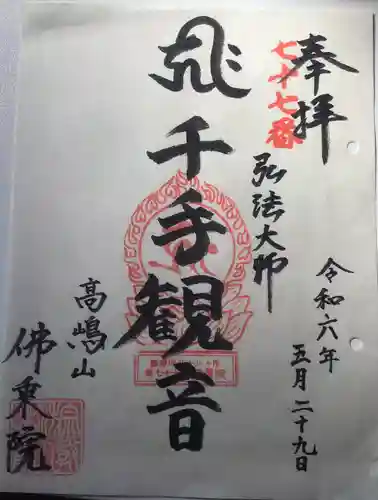 奉拝
七十七番
弘法大師
令和六年
五月二十九日
千手観音
高嶋山
佛乗院